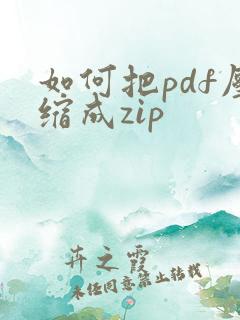 如何把pdf压
缩成zip
卉之霞
未经同意禁止转载